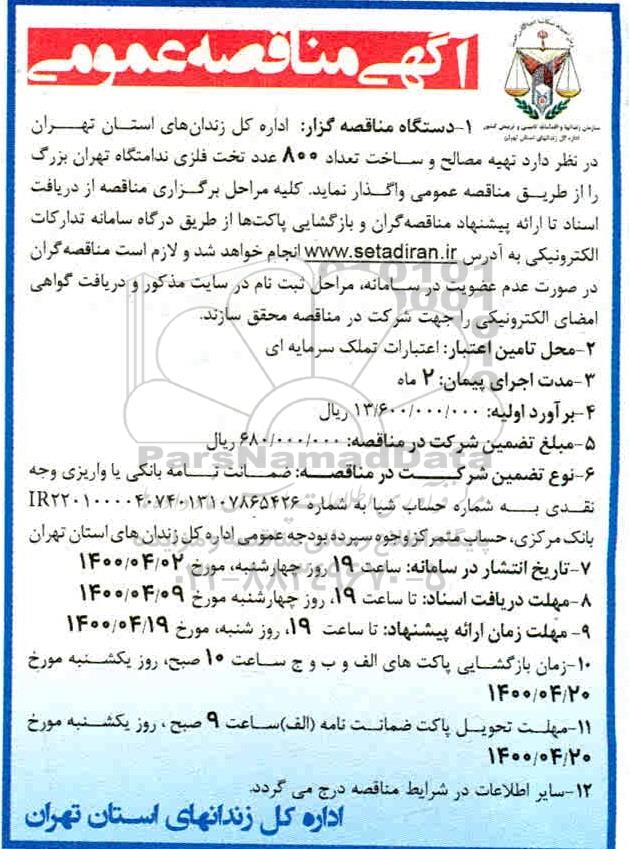 آگهی مناقصه عمومی
سازمان زندانها و اقدامات تامینی و تربیتی کشور
اداره کل زندانهای استان تهران
۱-دستگاه مناقصه گزار: اداره کل زندان‌های استان تهران
در نظر دارد تهیه مصالح و ساخت تعداد ۸۰۰ عدد تخت فلزی ندامتگاه تهران بزرگ
را از طریق مناقصه عمومی واگذار نماید. کلیه مراحل برگزاری مناقصه از دریافت
اسناد تا ارائه پیشنهاد مناقصه‌گران و بازگشایی پاکت‌ها از طریق درگاه سامانه تدارکات
الکترونیکی به آدرس www.setadiran.ir انجام خواهد شد و لازم است مناقصه‌گران
در صورت عدم عضویت در سامانه، مراحل ثبت نام در سایت مذکور و دریافت گواهی
امضای الکترونیکی را جهت شرکت در مناقصه محقق سازند.
۲-محل تامین اعتبار: اعتبارات تملک سرمایه ای
۳-مدت اجرای پیمان: ۲ ماه
۴-برآورد اولیه: ۱۳/۶۰۰/۰۰۰/۰۰۰ ریال
۵-مبلغ تضمین شرکت در مناقصه: ۶۸۰/۰۰۰/۰۰۰ ریال
ParsNamadData
۶-نوع تضمین شرکت در مناقصه: ضمانت نامه بانکی یا واریزی وجه
نقدی به شماره حساب شبا به شماره IR۲۲۰۱۰۰۰۰۴۰۷۴۰۱۳۱۰۷۸۶۵۴۲۶
بانک مرکزی، حساب متمرکز وجوه سپرده بودجه عمومی اداره کل زندان های استان تهران
۷-تاریخ انتشار در سامانه: ساعت ۱۹ روز چهارشنبه، مورخ ۱۴۰۰/۰۴/۰۲
۰۲۱-۸۸۳۴۹۶۷۰-۵
۸-مهلت دریافت اسناد: تا ساعت ۱۹، روز چهارشنبه مورخ ۱۴۰۰/۰۴/۰۹
۹- مهلت زمان ارائه پیشنهاد: تا ساعت ۱۹، روز شنبه، مورخ ۱۴۰۰/۰۴/۱۹
۱۰-زمان بازگشایی پاکت های الف و ب و ج ساعت ۱۰ صبح، روز یکشنبه مورخ
۱۴۰۰/۰۴/۲۰
۱۱-مهلت تحویل پاکت ضمانت نامه (الف)ساعت ۹ صبح ، روز یکشنبه مورخ
۱۴۰۰/۰۴/۲۰
۱۲-سایر اطلاعات در شرایط مناقصه درج می گردد.
اداره کل زندانهای استان تهران